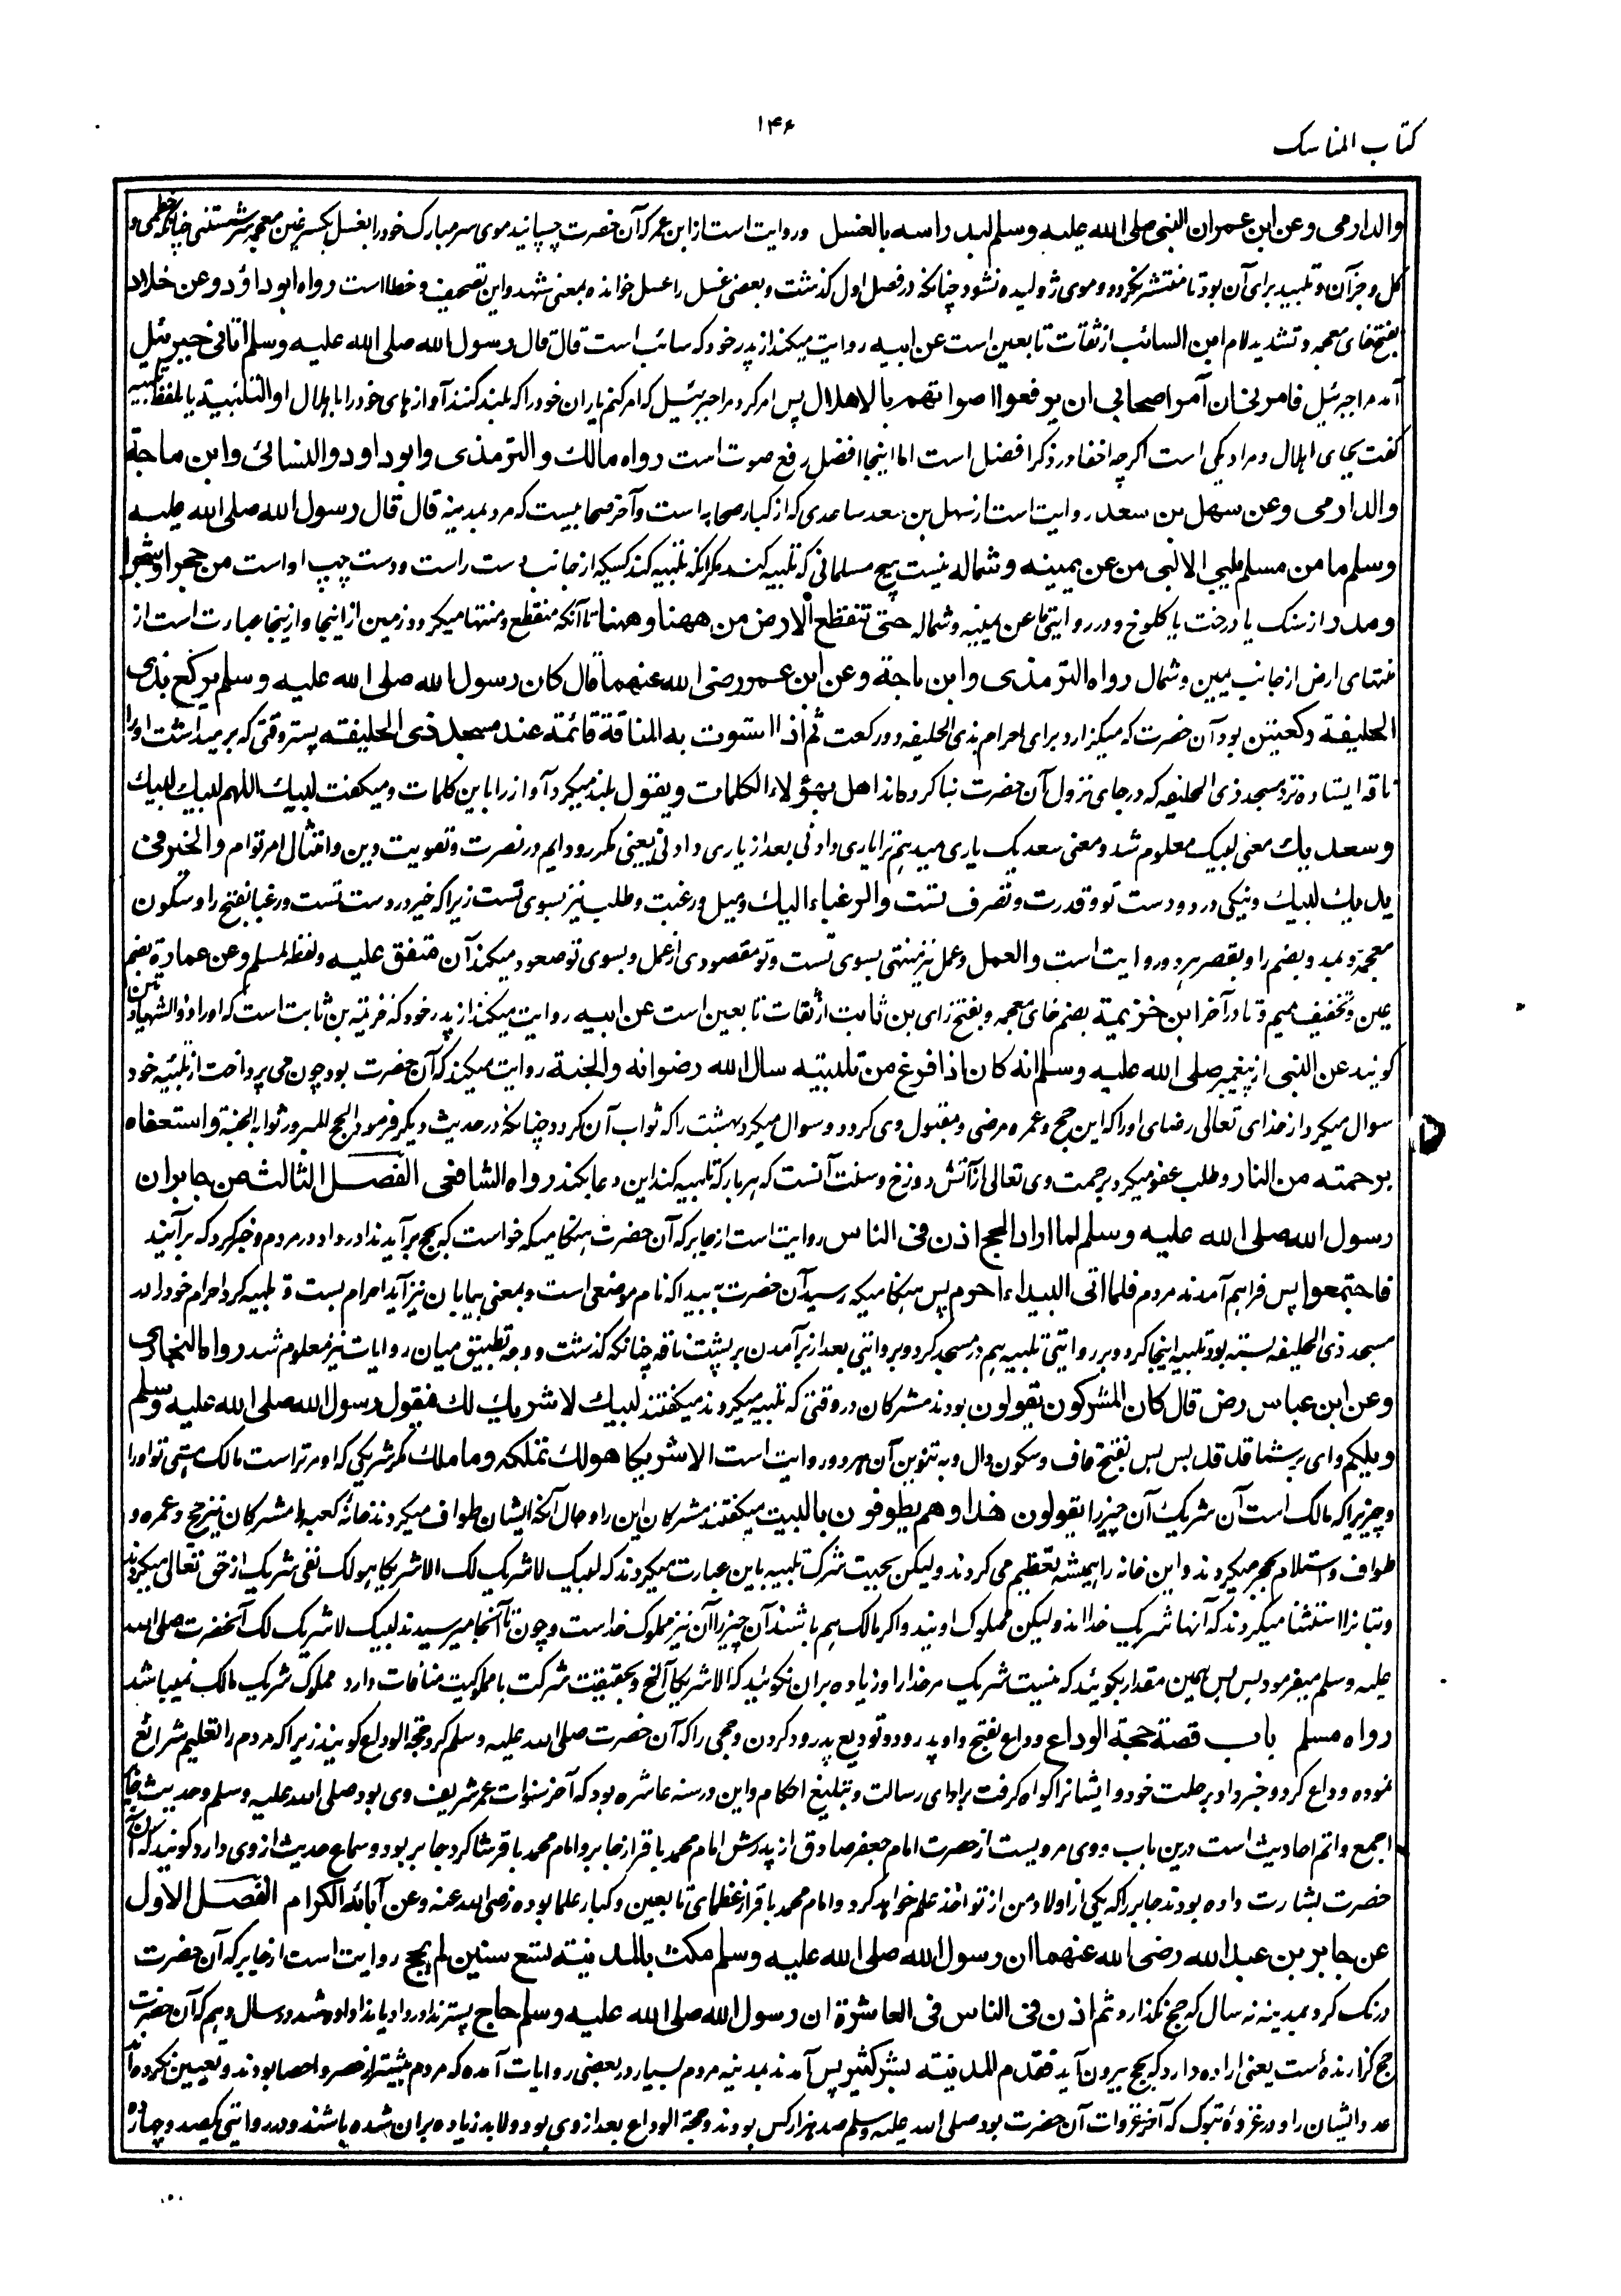 كتاب المناسك
۱۴۶
والدارمی وعن ابن عمر ان النبی صلی الله علیه وسلم لبد راسه بالغسل وروایت است از ابن عمر که آن حضرت چسپانید موی سر مبارک خود را بغسل بکسر غین معجمه سرشستنی چنانکه خطمی و
گل و جز آن و تلبید برای آن بود تا منتشر نگردد و موی ژولیده نشود چنانکه در فصل اول گذشت و بعضی غسل را عسل خوانده بمعنی شهد و این تصحیف و خطا است رواه ابو داؤد وعن خلاد
بفتح خای معجمه و تشدید لام ابن السائب از ثقات تابعین است عن ابیه روایت میکند از پدر خود که سائب است قال قال رسول الله صلی الله علیه وسلم اتانی جبرئیل
آمد مرا جبرئیل فامرنی ان آمر اصحابی ان یرفعوا اصواتهم بالاهلال پس امر کرد مرا جبرئیل که امر کنم یاران خود را که بلند کنند آواز های خود را با هلال او التلبیة یا بلفظ تلبیه
گفت بجای اهلال و مراد یکی است اگرچه اخفا در ذکر افضل است اما اینجا افضل رفع صوت است رواه مالك والترمذی وابو داود والنسائی وابن ماجة
والدارمی وعن سهل بن سعد روایت است از سهل بن سعد ساعدی که از کبار صحابه است و آخر صحابیست که مرد بمدینه قال قال رسول الله صلی الله علیه
وسلم ما من مسلم یلبی الا لبی من عن یمینه وشماله نیست هیچ مسلمانی که تلبیه کند مگر آنکه تلبیه کند کسیکه از جانب دست راست و دست چپ او است من حجر او شجر او
ومدر از سنگ یا درخت یا کلوخ و در روایتی ما عن یمینه وشماله حتی تنقطع الارض من ههنا وههنا تا آنکه منقطع و منتها میگردد زمین از اینجا و از اینجا عبارت است از
منتهای ارض از جانب یمین و شمال رواه الترمذی وابن ماجة وعن ابن عمر رضی الله عنهما قال کان رسول الله صلی الله علیه وسلم یرکع بذی
الحلیفة رکعتین بود آن حضرت که میگزارد برای احرام بذی الحلیفه دو رکعت ثم اذا استوت به الناقة قائمة عند مسجد ذی الحلیفته پستر وقتی که بر میداشت او را
ناقه ایستاده نزد مسجد ذی الحلیفه که در جای نزول آن حضرت بنا کرده اند اهل بهؤلاء الکلمات ویقول بلند میکرد آواز را باین کلمات و میگفت لبیك اللهم لبیك لبیك
وسعدیك معنی لبیک معلوم شد و معنی سعدیک یاری میدهم ترا یاری دادنی بعد از یاری دادنی یعنی مکرر و دایم در نصرت و تقویت دین و امتثال امر توام والخیر فی
یدیك لبیك و نیکی در دو دست تو و قدرت و تصرف تست والرغباء الیك و میل و رغبت و طلب نیز بسوی تست زیرا که خیر در دست تست و رغبا بفتح را و سکون
معجمه و بمد و بضم را و بقصر هر دو روایت است والعمل و عمل نیز منتهی بسوی تست و تو مقصودی از عمل و بسوی تو صعود میکند آن متفق علیه ولفظه لمسلم وعن عمارة بضم
عین و تخفیف میم و تا در آخر ابن خزیمة بضم خای معجمه و بفتح زای بن ثابت از ثقات تابعین است عن ابیه روایت میکند از پدر خود که خزیمه بن ثابت است که او را ذو الشهادتین
گویند عن النبی از پیغمبر صلی الله علیه وسلم انه کان اذا فرغ من تلبیته سال الله رضوانه والجنة روایت میکند که آن حضرت بود چون می پرداخت از تلبیه خود
سوال میکرد از خدای تعالی رضای او را که این حج و عمره مرضی و مقبول وی گردد و سوال میکرد بهشت را که ثواب آن گردد چنانکه در حدیث دیگر فرمود الحج المبرور ثوابه الجنة واستعفاه
برحمته من النار و طلب عفو میکرد برحمت وی تعالی از آتش دوزخ و سنت آنست که هر بار که تلبیه کند این دعا بکند رواه الشافعی الفصل الثالث عن جابر ان
رسول الله صلی الله علیه وسلم لما اراد الحج اذن فی الناس روایت است از جابر که آن حضرت هنگامیکه خواست که بحج برآید ندا در داد در مردم و خبر کرد که برآئید
فاجتمعوا پس فراهم آمدند مردم فلما اتی البیداء احرم پس هنگامیکه رسید آن حضرت به بیدا که نام موضعی است و بمعنی بیابان نیز آید احرام بست و تلبیه کرد احرام خود را در
مسجد ذی الحلیفه بسته بود تلبیه اینجا کرد و بر روایتی تلبیه هم در مسجد کرد و بروایتی بعد از برآمدن بر پشت ناقه چنانکه گذشت و وجه تطبیق میان روایات نیز معلوم شد رواه البخاری
وعن ابن عباس رض قال کان المشرکون یقولون بودند مشرکان در وقتی که تلبیه میکردند میگفتند لبیك لا شریك لك فیقول رسول الله صلی الله علیه وسلم
ویلکم وای بر شما قد قد بس بس بفتح قاف و سکون دال و به تنوین آن هر دو روایت است الا شریکا هو لك تملکه وما ملك مگر شریکی که او مر تراست مالک هستی تو او را
و چیزیرا که مالک است آن شریک آن چیز را یقولون هذا وهم یطوفون بالبیت میگفتند مشرکان این را و حال آنکه ایشان طواف میکردند خانهٔ کعبه را مشرکان نیز حج و عمره و
طواف و استلام حجر میکردند و این خانه را همیشه تعظیم می کردند ولیکن بجهت شرک تلبیه باین عبارت میکردند که لبیک لا شریک لک الا شریکا هو لک نفی شریک از حق تعالی میکردند
و بتانرا استثنا میکردند که آنها شریک خدا اند ولیکن مملوک اویند و اگر مالک هم باشند آن چیز را آن نیز مملوک خداست و چون تا آنجا میرسیدند لبیک لا شریک لک آنحضرت صلی الله
علیه وسلم میفرمود بس بس همین مقدار بگوئید که نیست شریک مر خدا را و زیاده بر ان نگوئید که الا شریکا آلخ و بحقیقت شرکت با مملوکیت منافات دارد مملوک شریک مالک نمیباشد
رواه مسلم باب قصة حجة الوداع وداع بفتح واو پدرود و تودیع پدرود کردن و حجی را که آن حضرت صلی الله علیه وسلم کرد حجة الوداع گویند زیرا که مردم را تعلیم شرائع
نموده وداع کرد و خبر داد برحلت خود و ایشانرا گواه گرفت بر ادای رسالت و تبلیغ احکام و این در سنه عاشره بود که آخر سنوات عمر شریف وی بود صلی الله علیه وسلم و حدیث جابر
اجمع و اتم احادیث است درین باب و وی مرویست از حضرت امام جعفر صادق از پدرش امام محمد باقر از جابر و امام محمد باقر شاگرد جابر بود و سماع حدیث از وی دارد گویند که آن
حضرت بشارت داده بودند جابر را که یکی از اولاد من از تو اخذ علم خواهد کرد و امام محمد باقر از عظمای تابعین و کبار علما بوده رضی الله عنه وعن آبائه الکرام الفصل الاول
عن جابر بن عبد الله رضی الله عنهما ان رسول الله صلی الله علیه وسلم مکث بالمدینة تسع سنین لم یحج روایت است از جابر که آن حضرت
درنگ کرد بمدینه نه سال که حج نگذارد ثم اذن فی الناس فی العاشرة ان رسول الله صلی الله علیه وسلم حاج پستر ندا در داد یا ندا داده شد در سال دهم که آن حضرت
حج گزارنده است یعنی اراده دارد که بحج بیرون آید فقدم المدینة بشر کثیر پس آمدند بمدینه مردم بسیار و در بعضی روایات آمده که مردم بیشتر از حصر و احصا بودند و تعیین نکرده اند
عدد ایشان را و در غزوهٔ تبوک که آخر غزوات آن حضرت بود صلی الله علیه وسلم صد هزار کس بودند و حجة الوداع بعد از وی بود و لا بد زیاده بر ان شده باشند و در روایتی یکصد و چهارده